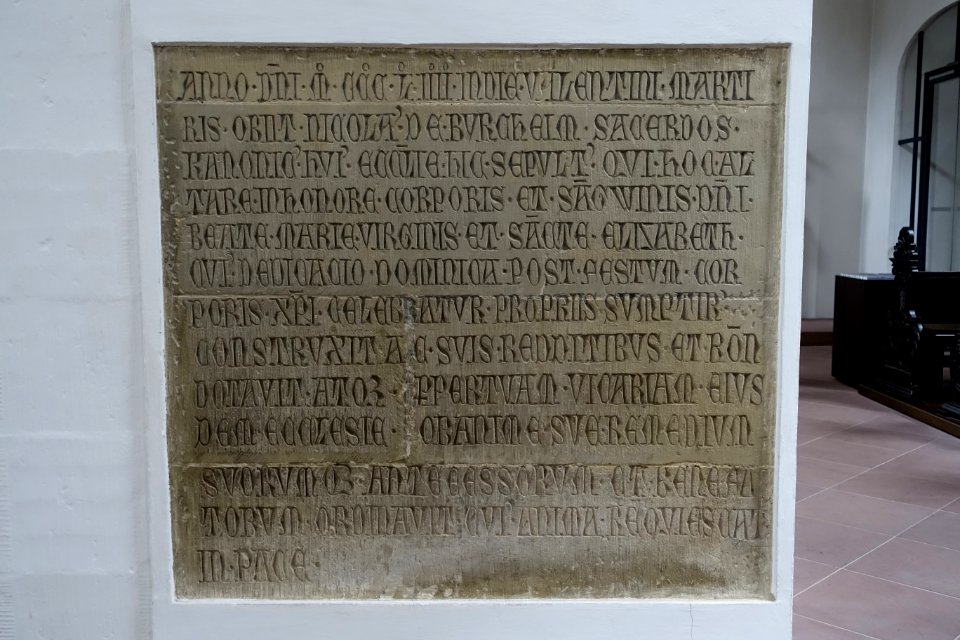 ANNO · DN̄I · M̊ · CCC̊ · L · IIII̊ · IN DIE · VALENTINI · MARTI
RIS · OBIIT · NICOLA' · DE · BVRCHEIM · SACERDOS ·
KANONIC' · HVI' · ECCL̄IE · HIC · SEPVLT' · QVI · HOC · AL
TARE · IN HONORE · CORPORIS · ET · SĀGVINIS · DN̄I ·
BEATE · MARIE · VIRGINIS · ET · SĀCTE · ELIZABETH ·
CVI' · DEDICACIO · DOMINICA · POST · FESTVM · COR
PORIS · XP̄I · CELEBRATVR · PROPRIIS · SVMPTIB'
CONSTRVXIT · AC · SVIS · REDDITIBVS · ET BON̄
DOTAVIT · ATQꝫ · ꝑPERTVAM · VICARIAM · EIVS
DEM · ECCLESIE · OB ANIME · SVE · REMEDIVM
SVORVMQꝫ · ANTECESSORVM · ET · BENEFAC
TORVM · ORDINAVIT · CVI' · ANIMA · REQVIESCAT
IN · PACE ·